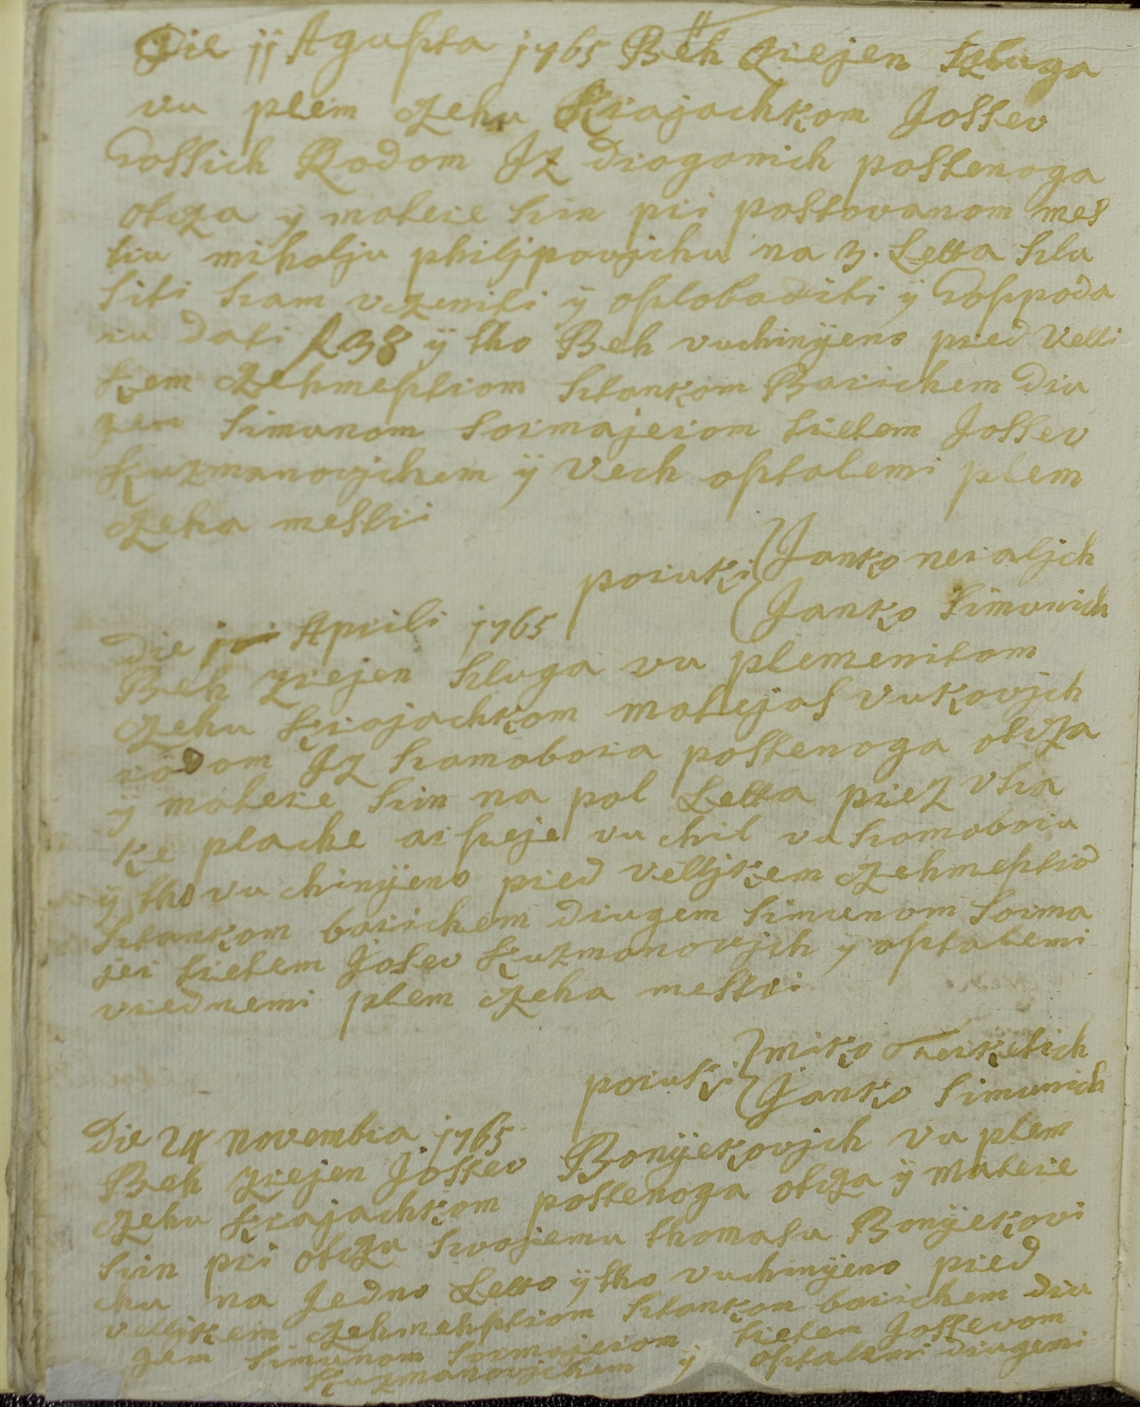 Die jj Agusta 1765 Beh Zriejen Szluga
vu plem czehu Krajachkom Jossev
Gossich Rodom Jz Dragonich postenoga
otcza y matere szin pri postovanom mes
tru mihalju philjpovjchu na 3. Letta szlu
siti kam vczeniti ÿ oslobaditi ÿ Gospoda
ru dati f 38 ÿ tho Beh vuchinÿeno pred Velli
kem czehmestrom Sztankom Barichem dru
gem simunom sormajerom tretem Jossev
Kuzmanovjchem ÿ vech ostalemi plem
czeha mestri
poruki Janko neraljch
Janko simunich
Die Aprili 1765
Beh zriejen szluga vu plemenitom
czehu krajachkom matejas vukovjch
rodom Jz szamobora postenoga otcza
y matere szin na pol Letta prez vsza
ke plache ar sze je vu chil vu szamoboru
ÿ tho vu chinÿeno pred velljkem czehmestrom
sztankom barichem drugem simunom sorma
jer tretem Josev Kuzmanovjch y ostalemi
vrednemi plem czeha mestri
poruki miko
Janko simunich
Die 24 novembra 1765
Beh zriejen Jossev Bonÿekovjch vu plem
czehu krajachkom postenoga otcza ÿ matere
szin pri otczu szvojemu thomasu Bonÿekovi
chu na Jedno Letto ÿ tho vuchinÿeno pred
velljkem czehmehstrom sztankom barichem dru
gem simunom sormajerom tretem Jossevom
Kuzmanovjchem ÿ ostalemi drugemi